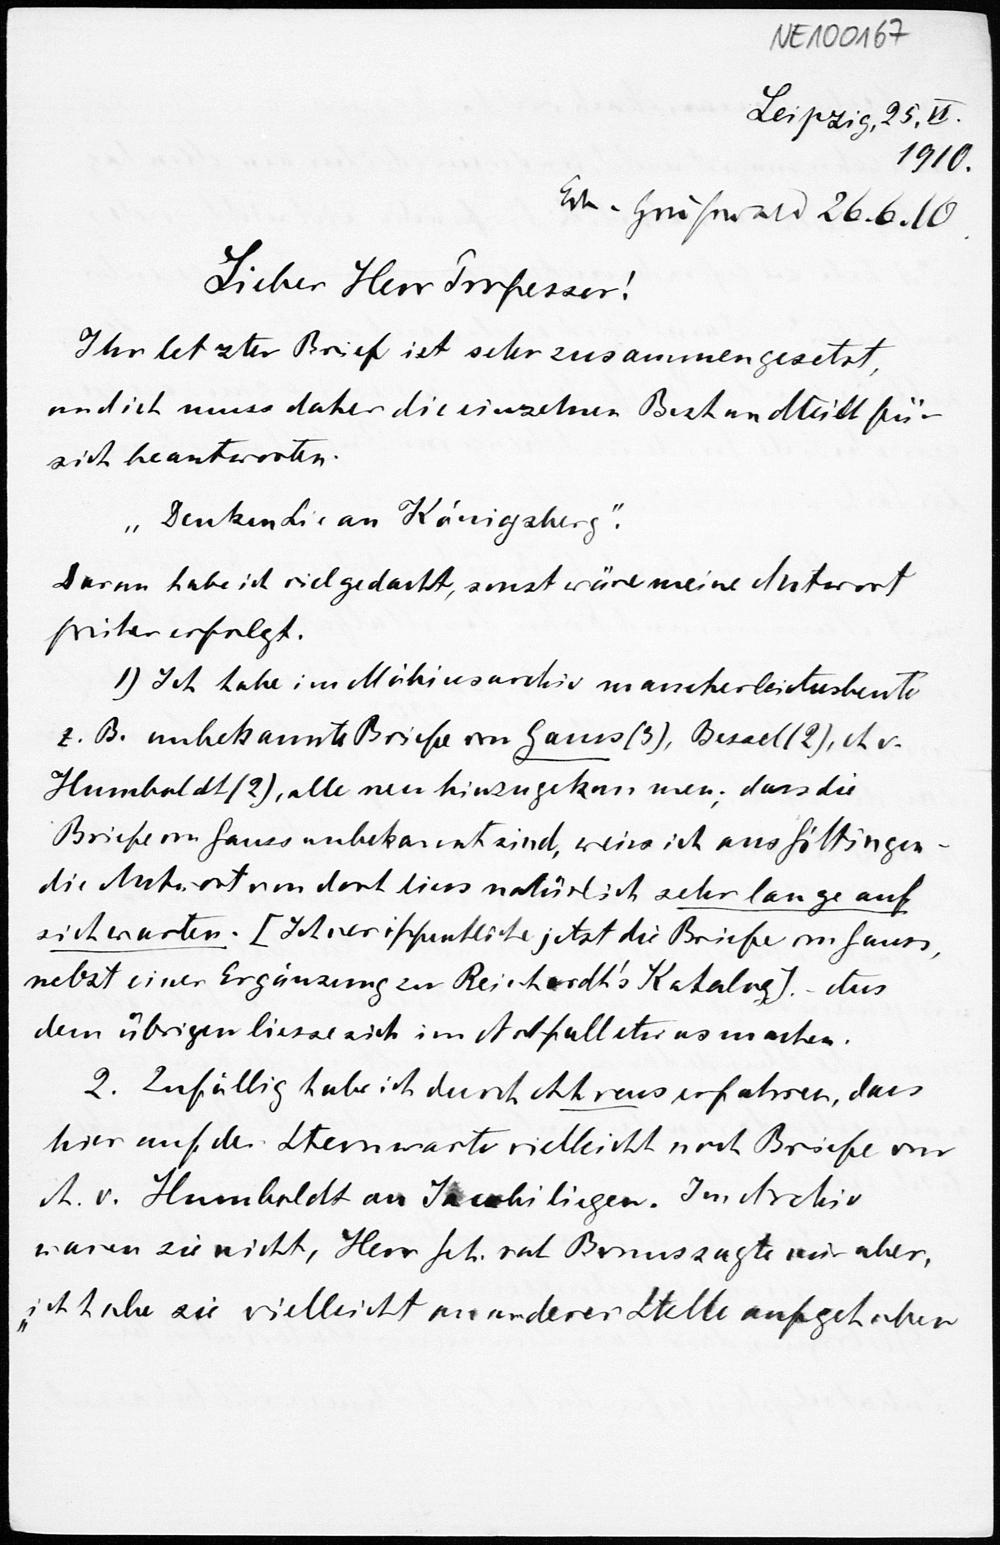 NE100167
Leipzig, 25. VI.
1910.
Erh. Greifswald 26.6.10
Lieber Herr Professor!
Ihr letzter Brief ist sehr zusammengesetzt,
und ich muss daher die einzelnen Bestandteile für
sich beantworten.
„Denken Sie an Königsberg“.
Daran habe ich viel gedacht, sonst wäre meine Antwort
früher erfolgt.
1) Ich habe im Möbiusarchiv mancherlei Ausbeute
z. B. unbekannte Briefe von Gauss (3), Bessel (2), A v.
Humboldt (2), alle neu hinzugekommen; dass die
Briefe von Gauss unbekannt sind, weiss ich aus Göttingen -
die Antwort von dort liess natürlich sehr lange auf
sich warten. [Ich veröffentliche jetzt die Briefe von Gauss,
nebst einer Ergänzung zu Reinhardt's Katalog]. - Aus
dem übrigen liesse sich im Notfall etwas machen.
2. Zufällig habe ich durch Ahrens erfahren, dass
hier auf der Sternwarte vielleicht noch Briefe von
A. v. Humboldt an Jacobi liegen. Im Archiv
waren sie nicht, Herr Geh. rat Bruns sagte mir aber,
„ich habe sie vielleicht an anderer Stelle aufgehoben